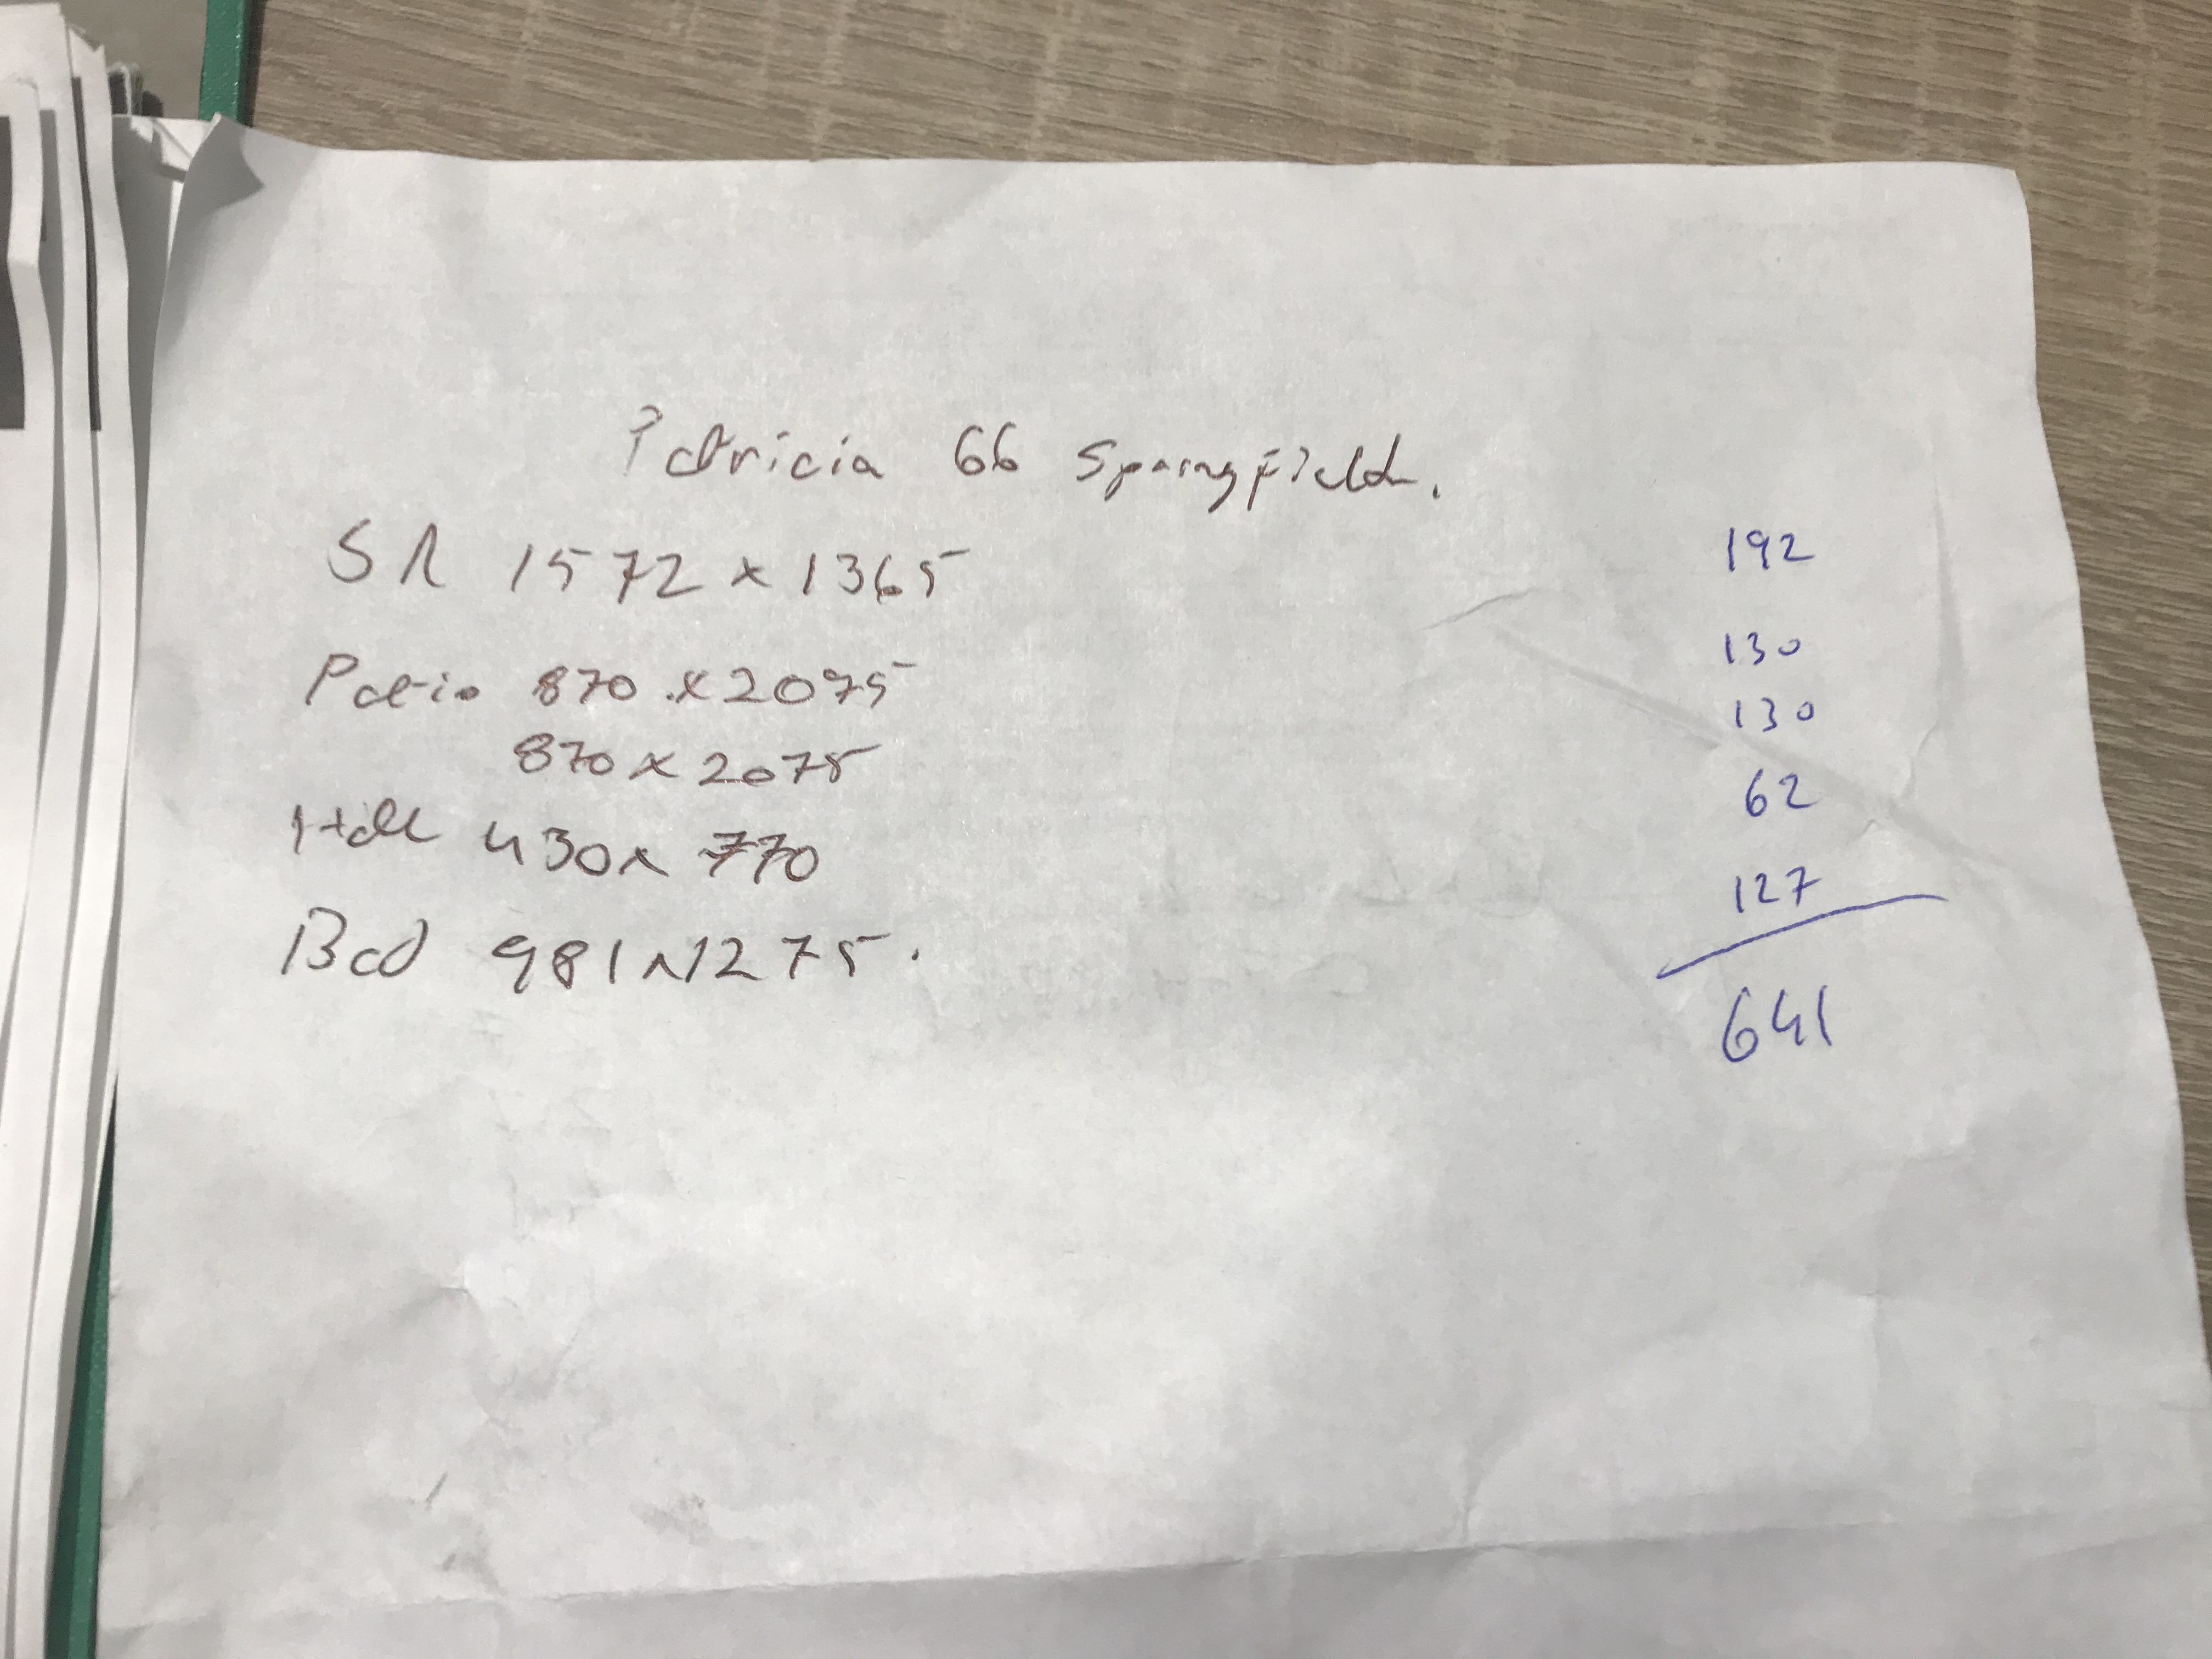 Patricia 66 Springfield.
SR 1572 x 1365 192
Patio 870 x 2075 130
870 x 2075 130
Hall 430 x 770 62
Bed 981 x 1275. 127
641